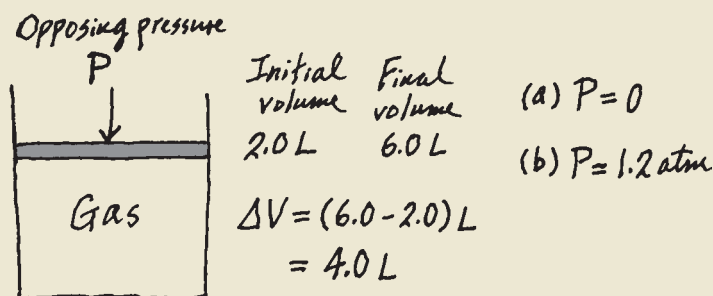 Opposing pressure
P
Gas
Initial volume
2.0 L
Final volume
6.0 L
ΔV = (6.0 - 2.0) L
= 4.0 L
(a) P = 0
(b) P = 1.2 atm